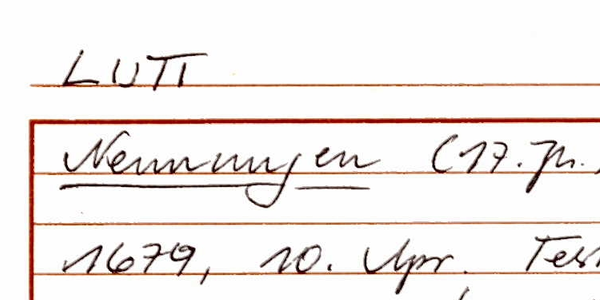 LUTI
Nennungen (17. Jh.)
1679, 10. Apr. Test